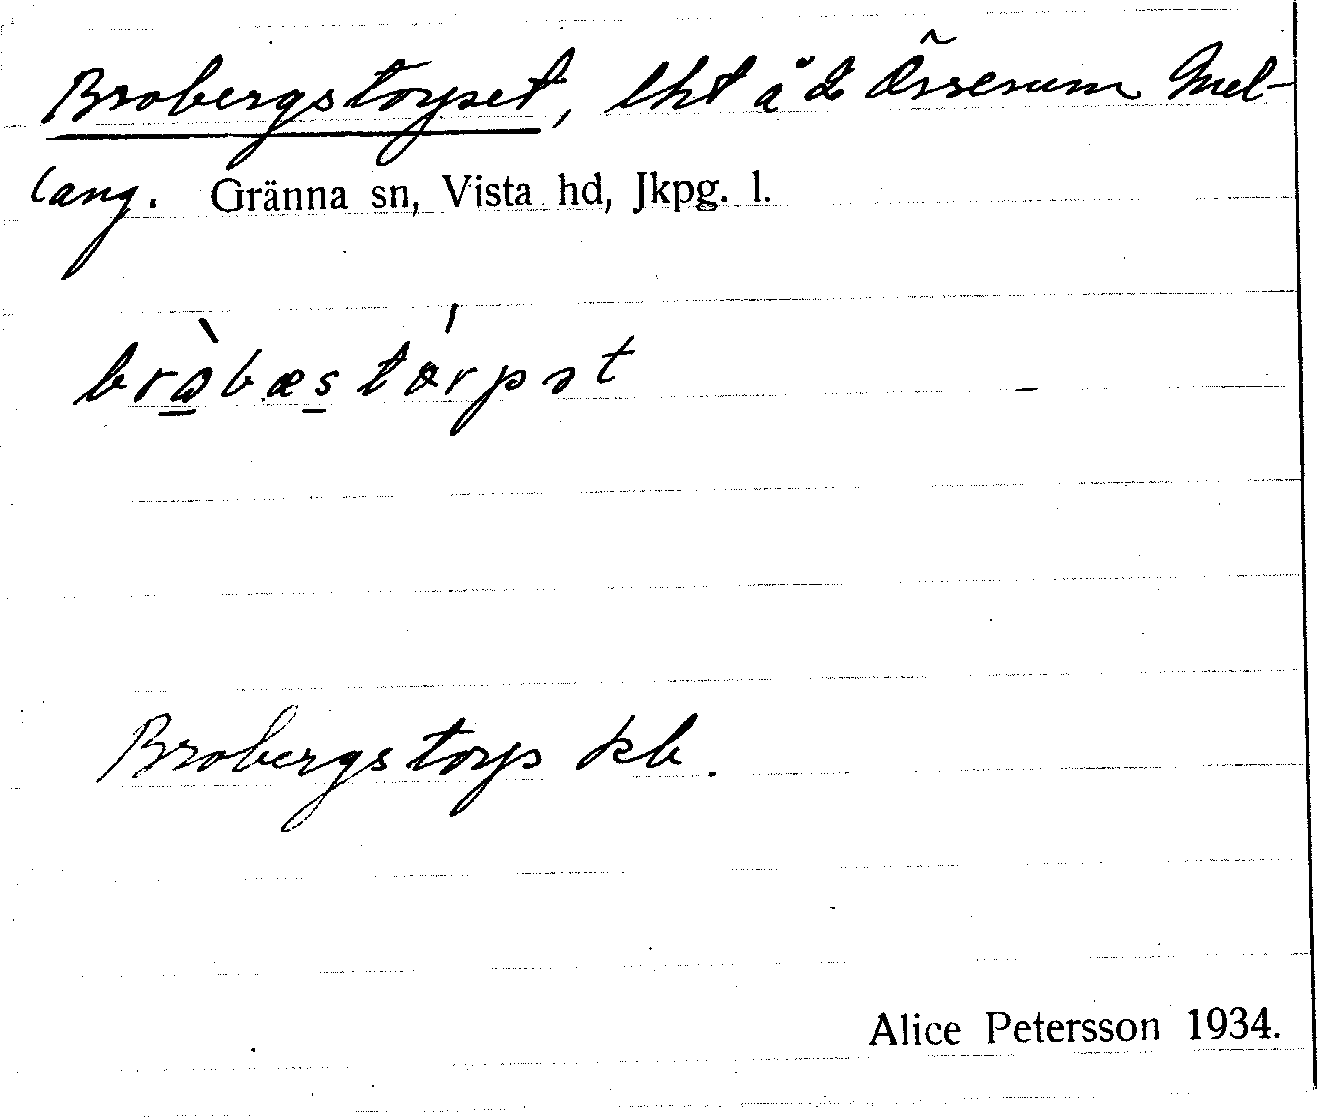 Brobergstorpet, lht å d Össerum Mel-
lang. Gränna sn, Vista hd, Jkpg. l.
bròbæstórpət
Brobergstorp kb.
Alice Petersson 1934.